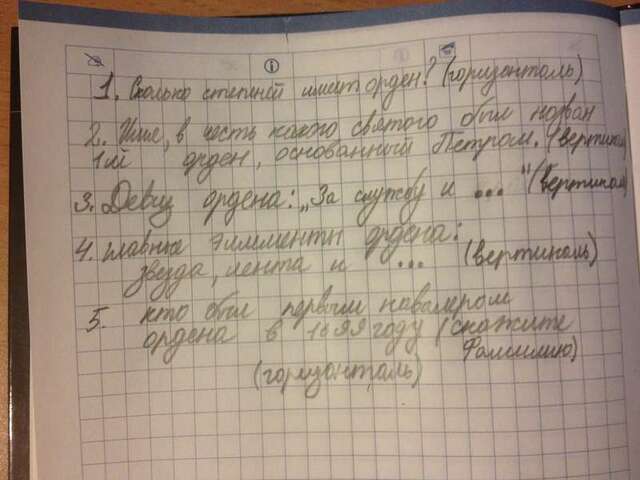 1. Сколько степеней имеет орден? (горизонталь)
2. Имя, в честь какого святого был назван
1ый орден, основанный Петром. (вертикаль)
3. Девиз ордена: „За службу и ... " (вертикаль)
4. Главные элементы ордена:
звезда, лента и ... (вертикаль)
5. Кто был первым кавалером
ордена в 1699 году (скажите
фамилию)
(горизонталь)